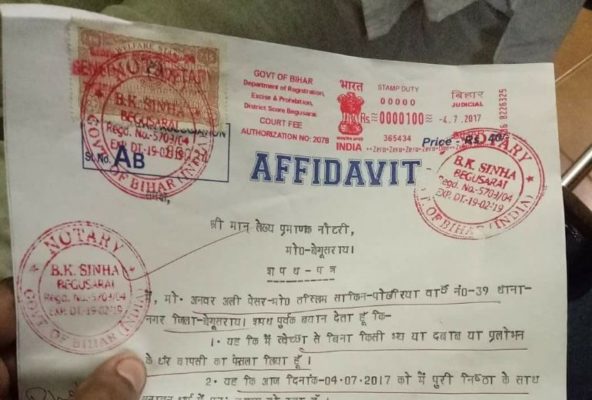 WELFARE STAMP
GOVT OF BIHAR
Department of Registration,
Excise & Prohibition,
District Score Begusarai
COURT FEE
AUTHORIZATION NO: 2078
भारत
INDIA
STAMP DUTY
00000
Rs 0000100
365434
Zero-Zero-Zero-Zero
बिहार
JUDICIAL
4.7.2017
0226325
Price - Rs
NOTARY
B.K. SINHA
BEGUSARAI
Regd. No.-5703/04
EXP. DT.-19-02-19
GOVT OF BIHAR (INDIA)
Sl. No. AB
AFFIDAVIT
NOTARY
B.K. SINHA
BEGUSARAI
Regd. No.-5703/04
EXP. DT.-19-02-19
GOVT OF BIHAR (INDIA)
श्री मान लेख्य प्रमाणक नौटरी,
मो0-बेगूसराय।
शपथ-पत्र
NOTARY
B.K. SINHA
BEGUSARAI
Regd. No.-5703/04
EXP. DT.-19-02-19
GOVT OF BIHAR (INDIA)
मैं, मो. अनवर अली पेसर-मो0 साकिन-पोखरिया वार्ड नं0-39 थाना-
नगर जिला-बेगूसराय। शपथ पूर्वक बयान देता हूँ कि-
1. यह कि मैं स्वेच्छा से बिना किसी भय या दबाव या प्रलोभन
के घर वापसी का फैसला लिया हूँ।
2. यह कि आज दिनांक-04.07.2017 को मैं पुरी निष्ठा के साथ